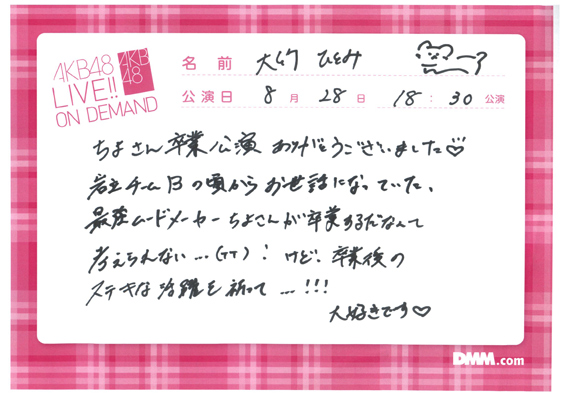 AKB48
LIVE!!
ON DEMAND
AKB
48
名前 大竹 ひとみ
公演日 8月28日 18:30公演
ちよさん卒業公演 ありがとうございました♡
岩立チームBの頃からお世話になっていた、
最強ムードメーカーちよさんが卒業するだなんて
考えられない…(TT)! けど、卒業後の
ステキな活躍を祈って…!!!
大好きです♡
DMM.com